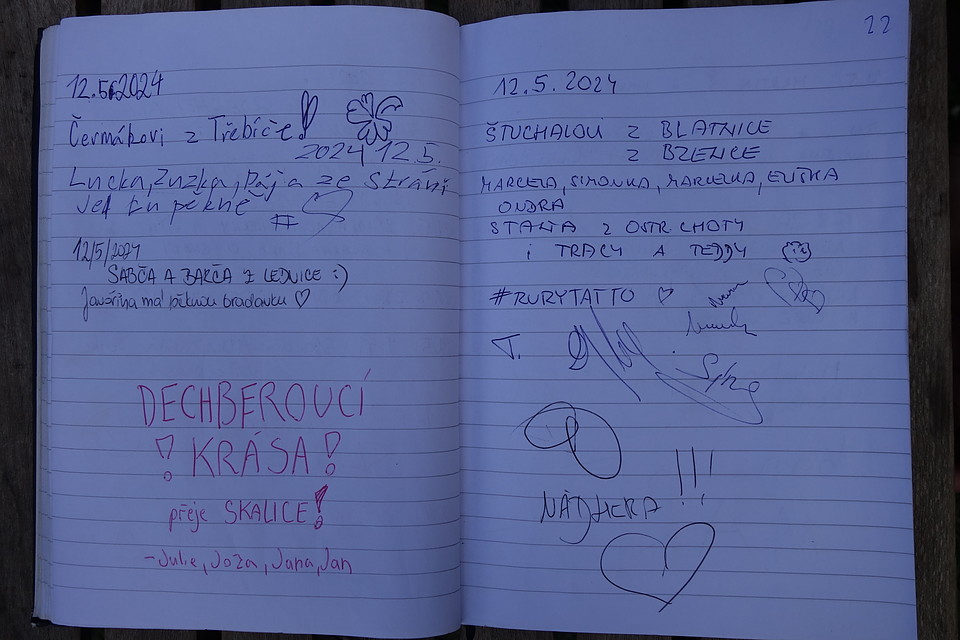 12.5.2024
Čermákovi z Třebíče!
2024 12.5.
Lucka, Zuzka, Pája ze Strání
Jed tu pěkně
#
12/5/2024
SABČA A BARČA Z LEDNICE :)
Javořina má pěknou bradavku ♡
DECHBEROUCÍ
! KRÁSA!
přeje SKALICE!
- Julie, Joža, Jana, Jan
22
12.5.2024
ŠTUCHALOVI Z BLATNICE
Z BZENCE
MARCELA, SIMONKA, MARCELKA, EVIČKA
ONDRA
STAŇA Z OSTR. LHOTY
i TRACY A TEDDY
#RURYTATTO ♡
T.
NÁDHERA !!!